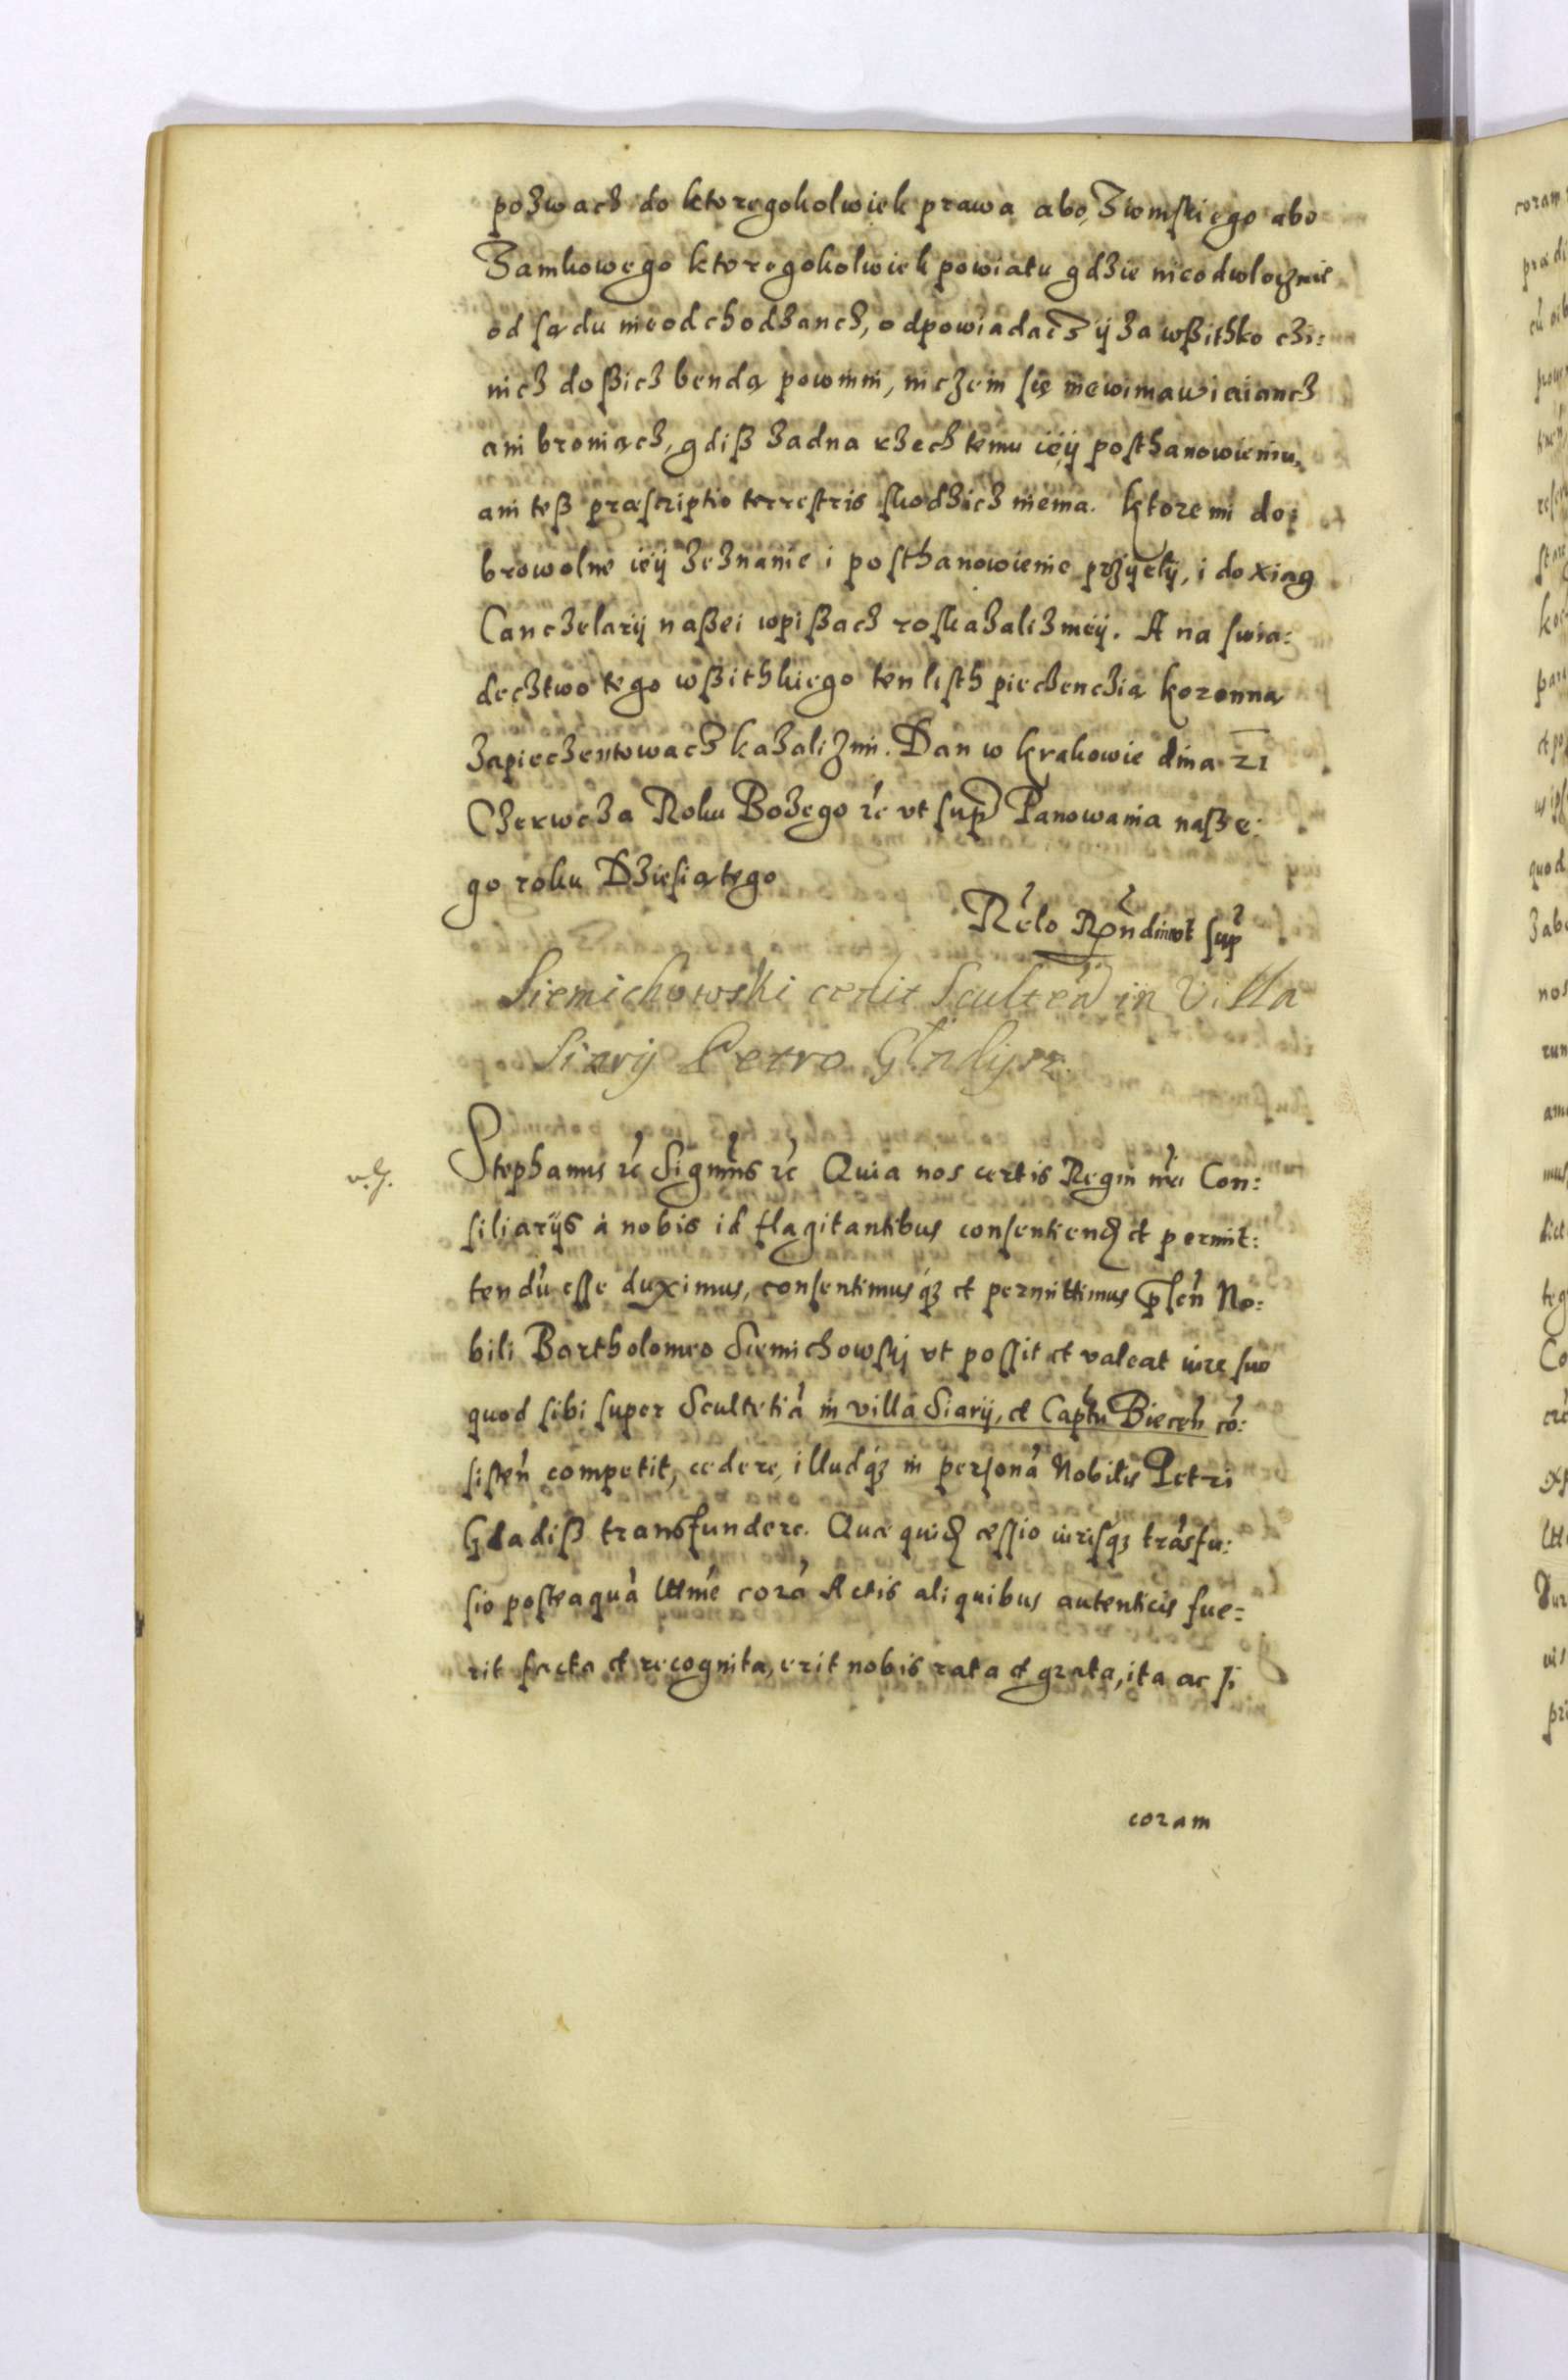 pozwacz do ktoregokolwiek prawa abo Ziemskiego abo
Zamkowego ktoregokolwiek powiatu gdzie nieodwlocznie
od sądu nieodchodzancz, odpowiadacz ÿ za wßithko czi:
nicz doßicz bendą powinni, niczem się niewimawiaiancz
ani broniącz, gdiß zadna rzecz temu ieÿ posthanowieniu,
ani teß præscriptio terrestris skodzicz niema. Ktore mi do:
browolne ieÿ zeznanie i posthanowienie przÿęlÿ, i do xiąg
Canczelarÿ naßei wpißacz roskazalizmÿ. A na swia:
decztwo tego wßithkiego ten listh pieczenczią koronną
zapieczentowacz kazalizmi. Dan w Krakowie dnia 21
Czerwcza Roku Bożego rc vt sup Panowania nasze:
go roku Dziesiątego
Relo Rndi vt sup
Siemichowski cedit Scultetia in Villa
Siarÿ Petro Gładysz.
Stephanus rc Sigmtus rc Quia nos certis Regni nri Con:
siliarÿs à nobis id flagitantibus consentiend et permit:
tendu esse duximus, consentimusq3 et permittimus pñ No:
bili Bartholomeo Siemichowskj vt possit et valeat iure suo
quod sibi super Scultetia in villa Siarÿ, et Captu Biecen co:
sisten competit, cedere, illudq3 in persona Nobilis Petri
Gladiß transfundere. Quæ quid cessio iurisq3 trasfu:
sio posteaqua lttme cora Actis aliquibus autenticis fue:
rit facta et recognita, erit nobis rata et grata, ita ac si
coram